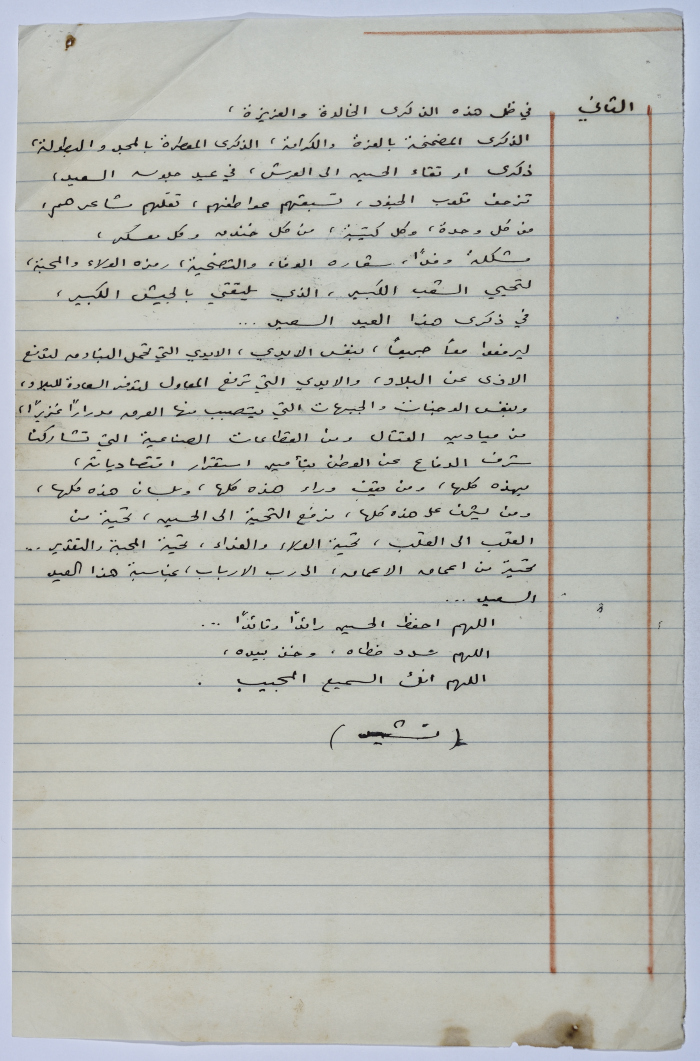 الثاني
في ظل هذه الذكرى الخالدة والعزيزة ،
الذكرى المضمخة بالعزة والكرامة ، الذكرى المعطرة بالمجد والبطولة ،
ذكرى ارتقاء الحسين الى العرش ، في عيد جلوسه السعيد ،
تزحف قلوب الجنود ، تسبقهم عواطفهم ، تقلهم مشاعرهم ،
من كل وحدة ، وكل كتيبة ، من كل خندق وكل معسكر ،
مشكلةً وفداً ، شعاره الوفاء والتضحية ، رمزه الولاء والمحبة ،
لتحيي الشعب الكبير ، الذي يلتقي بالجيش الكبير ،
في ذكرى هذا العيد السعيد ...
ليرفعوا معاً جميعاً ، بنفس الايدي ، الايدي التي تحمل البنادق لتدفع
الاذى عن البلاد ، والايدي التي ترفع المعاول لتوفر السعادة للبلاد ،
وبنفس الوجنات والجبهات التي يتصبب منها العرق مدراراً غزيراً ،
من ميادين القتال ومن القطاعات الصناعية التي تشاركنا
شرف الدفاع عن الوطن بتأمين استقرار اقتصادياته ،
بهذه كلها ، ومن يقف وراء هذه كلها ، وبلسان هذه كلها ،
ومن يشرف على هذه كلها ، نرفع التحية الى الحسين ، تحية من
القلب الى القلب ، تحية الولاء والفداء ، تحية المحبة والتقدير ...
تحية من اعماق الاعماق ، الى رب الارباب ، بمناسبة هذا العيد
السعيد ...
اللهم احفظ الحسين رائداً وقائداً ...
اللهم سدد خطاه ، وخذ بيده ،
اللهم انك السميع المجيب .
( نشيد )